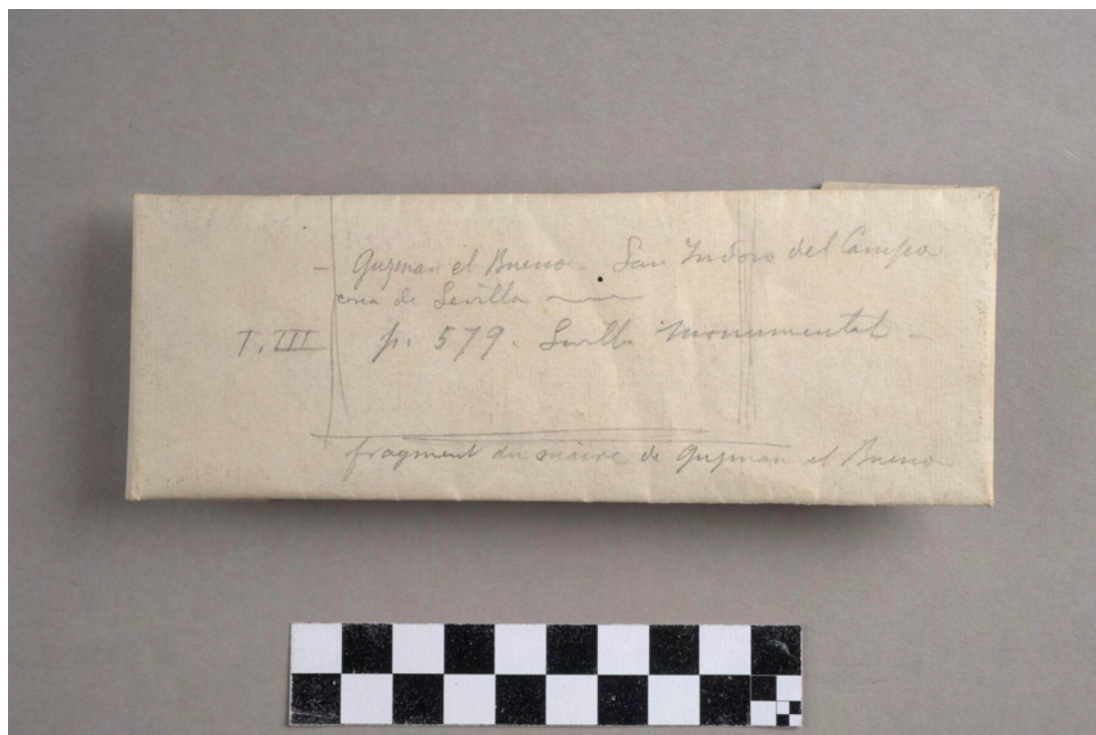 - Guzman el Bueno - San Isidoro del Campo
cerca de Sevilla
T. III p. 579. Sevilla Monumental -
fragment du suaire de Guzman el Bueno